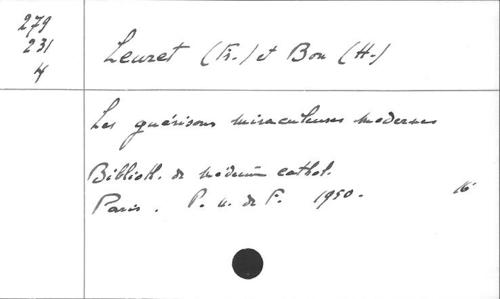 279
231
4
Leuret (Fr.) et Bon (H.)
Les guérisons miraculeuses modernes
Biblioth. de médecine cathol.
Paris. P. u. de F. 1950. 16°